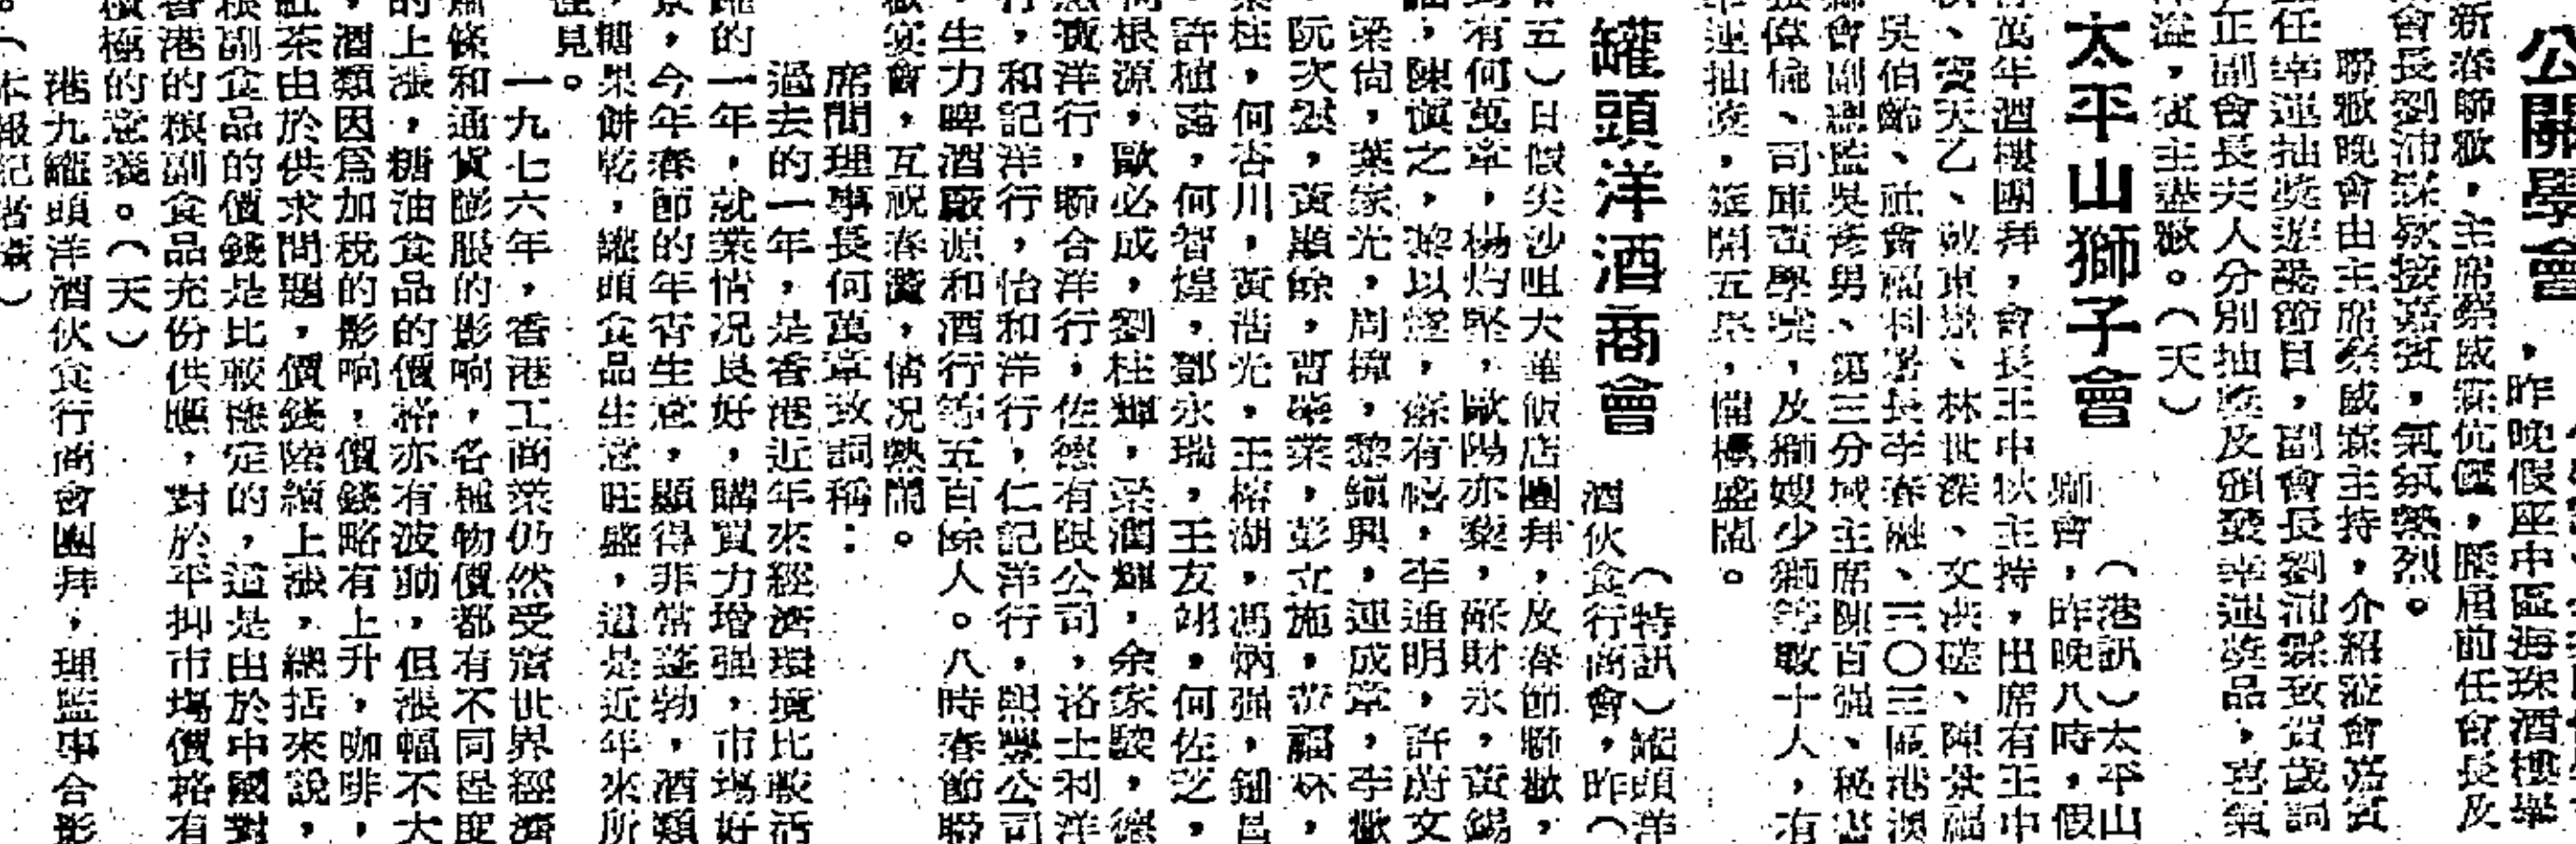 公開學會，昨晚假座中區海珠酒樓舉
新春聯歡，主席蔡威霖伉儷，歷屆前任會長及
會長劉沛霖欵接嘉賓，氣氛熱烈。
聯歡晚會由主席蔡威霖主持，介紹蒞會嘉賓
任幸運抽獎遊藝節目，副會長劉沛霖致賀歲詞
正副會長夫人分別抽獎及頒發幸運獎品，喜氣
洋溢，賓主盡歡。（天）
太平山獅子會
（港訊）太平山
獅會，昨晚八時，假
萬年酒樓團拜，會長王中秋主持，出席有王中
、寶天乙、林世深、文洪磋、陳景福
吳伯齡、社會福利署長李春融、三〇三區港澳
會副總監吳彥男、第三分域主席陳百强、秘書
張偉倫、司庫雷學滉，及獅嫂少獅等數十人，有
幸運抽獎，筵開五席，備極盛鬧。
罐頭洋酒商會
（特訊）罐頭洋
酒伙食行商會，昨（
廿五）日假尖沙咀大華飯店團拜，及春節聯歡，
到有何萬章，楊灼堅，歐陽亦藜，蘇財永，黃錫
，陳慎之，黎以達，蘇有幅，李通明，許蔚文
梁尙，葉家光，周樟，黎鎮興，連成章，李撤
阮次裂，黃顯餘，曹榮業，彭立施，黃福林，
柱，何杏川，黃浩光，王榕湖，馮炳强，鍾昌
許植藹，何智煌，鄧永瑞，王友翊，何佐之，
根源，歐必成，劉桂輝，梁潤輝，余家駿，德
寶洋行，聯合洋行，佐德有限公司，洛士利洋
行，和記洋行，怡和洋行，仁記洋行，熙豐公司
，生力啤酒廠源和酒行等五百餘人。八時春節聯
歡宴會，互祝春釐，情況熱鬧。
席間理事長何萬章致詞稱：
過去的一年，是香港近年來經濟環境比較活
躍的一年，就業情況良好，購買力增强，市場好
景，今年春節的年宵生意，顯得非常蓬勃，酒類
，糖果餅乾，罐頭食品生意旺盛，這是近年來所
僅見。
一九七六年，香港工商業仍然受着世界經濟
蕭條和通貨膨脹的影响，各種物價都有不同程度
的上漲，糖油食品的價格亦有波動，但漲幅不大
，酒類因爲加稅的影响，價錢略有上升，咖啡，
紅茶由於供求問題，價錢陸續上漲，總括來說，
糧副食品的價錢是比較穩定的，這是由於中國對
香港的糧副食品充份供應，對於平抑市場價格有
積極的意義。（天）
港九罐頭洋酒伙食行商會團拜，理監事合影
。（本報記者攝）